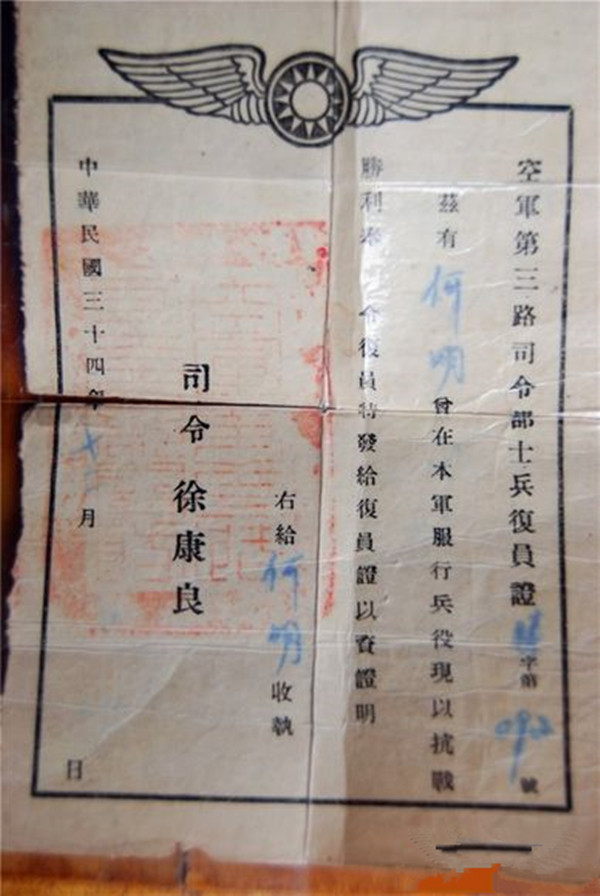 空軍第三路司令部士兵復員證 字第092號
茲有何明曾在本軍服行兵役現以抗戰
勝利奉 令復員特發給復員證以資證明
右給何明收執
司令 徐康良
中華民國三十四年十二月 日